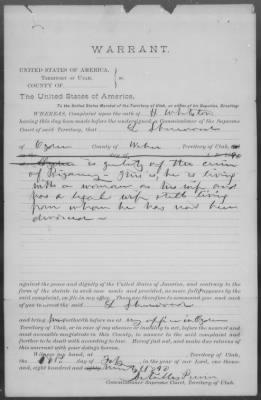 WARRANT.
UNITED STATES OF AMERICA,
TERRITORY OF UTAH, } ss.
COUNTY OF
The United States of America,
To the United States Marshal of the Territory of Utah, or either of his Deputies, Greeting:
WHEREAS, Complaint upon the oath of H Whetstone
having this day been made before the undersigned a Commissioner of the Supreme
Court of said Territory, that L Sherwood
of Ogden County of Weber Territory of Utah,
is guilty of the crime
of Bigamy - This is, he is living
with a woman as his wife and
has a legal wife still living
from whom he has not been
divorced -
against the peace and dignity of the United States of America, and contrary to the
form of the statute in such case made and provided, as more fully appears by the
said complaint, on file in my office. These are therefore to command you and each
of you to arrest the said L Sherwood
and bring him forthwith before me at my office in Ogden
Territory of Utah, or in case of my absence or inability to act, before the nearest and
most accessible magistrate in this County, to answer to the said complaint and
further to be dealt with according to law. Hereof fail not, and make due returns of
this warrant with your doings hereon.
Witness my hand, at Territory of Utah,
the day of Feb in the year of our Lord, one thousand,
eight hundred and ninety 1890
Commissioner Supreme Court, Territory of Utah.